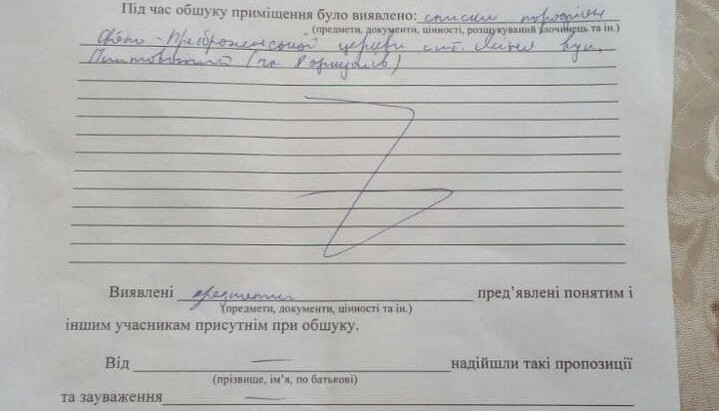 Під час обшуку приміщення було виявлено: списки
(предмети, документи, цінності, розшукуваний злочинець та ін.)
Свято - Преображенської церкви смт. вул.
(на 8 аркушах)
Виявлені предмети пред’явлені понятим і
(предмети, документи, цінності та ін.)
іншим учасникам присутнім при обшуку.
Від — надійшли такі пропозиції
(прізвище, ім’я, по батькові)
та зауваження —